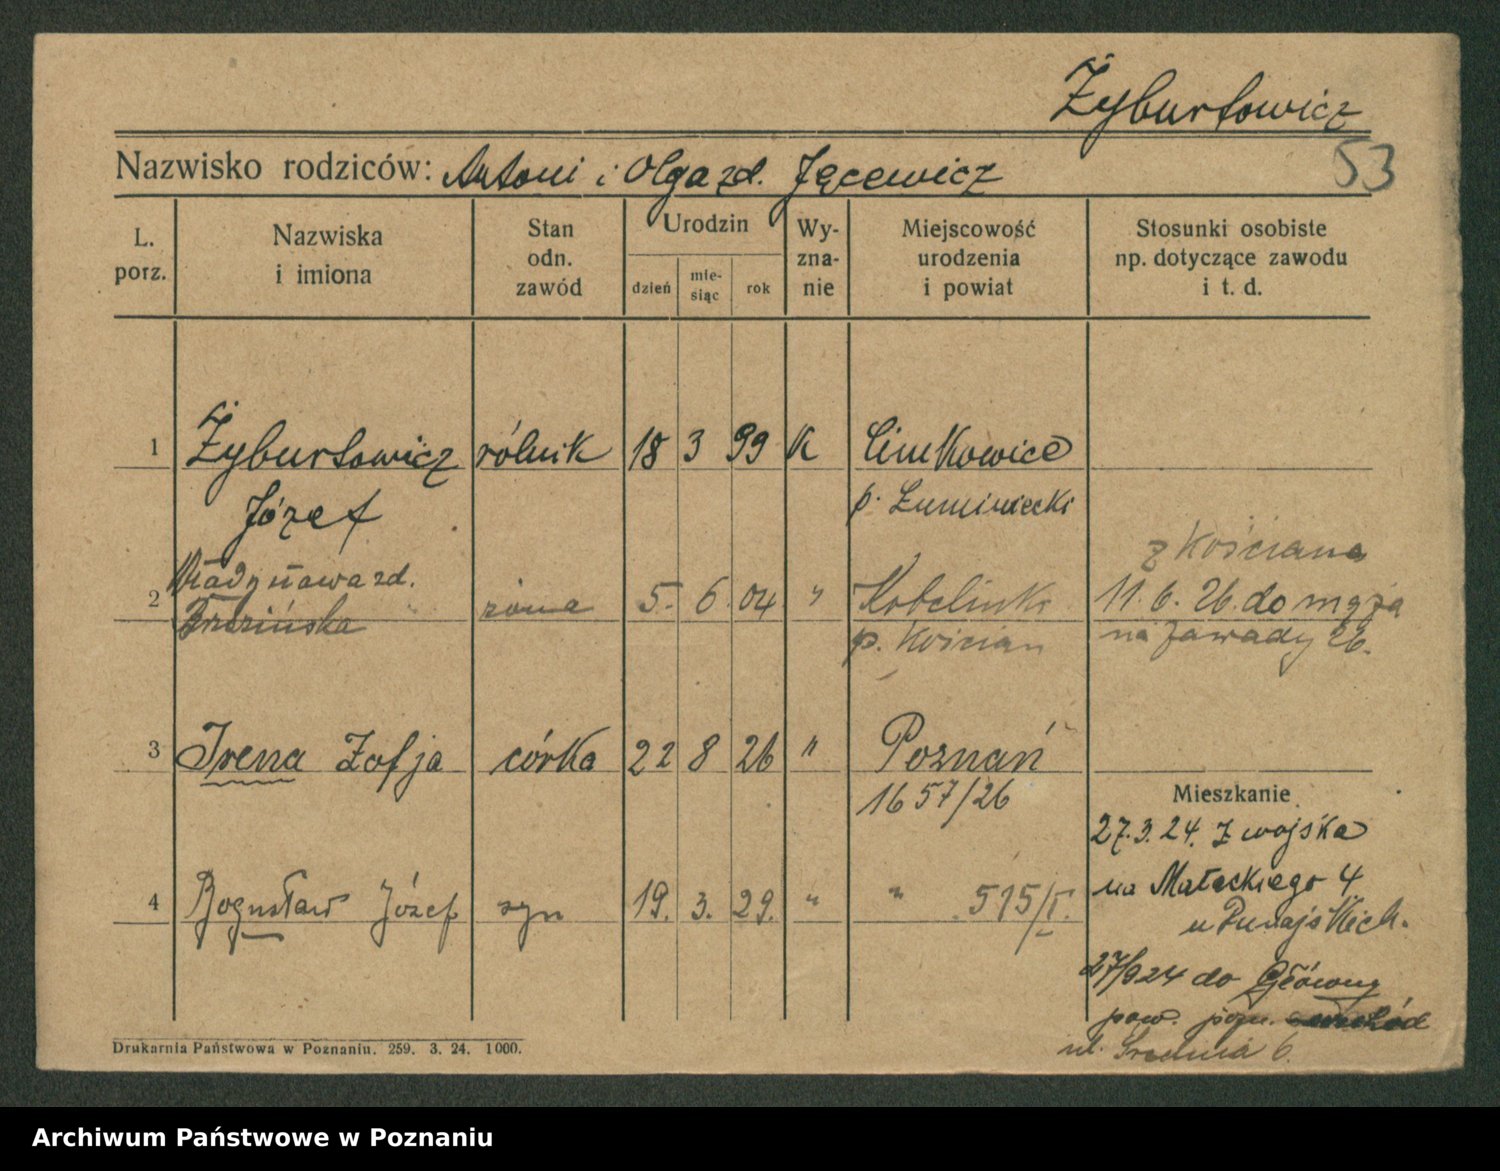 Żyburtowicz
53
Nazwisko rodziców: Antoni i Olga zd. Jęcewicz
L. porz.
Nazwiska i imiona
Stan odn. zawód
Urodzin
dzień
mie-siąc
rok
Wy-zna-nie
Miejscowość urodzenia i powiat
Stosunki osobiste np. dotyczące zawodu i t. d.
1 Żyburtowicz rólnik 18 3 99 K Cimkowice
Józef p.
z Kościana
Władysława zd.
2 żona 5. 6. 04 " 11. 6. 26. do męża
p. Kościan na Zawady 26.
3 Irena Zofja córka 22 8 26 " Poznań
1657/26
Mieszkanie
27.3.24. z wojska
4 Bogusław Józef syn 19. 3. 29. " " 515/I.
na Małeckiego 4
u
27/9 24 do Główny
pow. pozn.
ul. Średnia 6.
Drukarnia Państwowa w Poznaniu. 259. 3. 24. 1000.
Archiwum Państwowe w Poznaniu